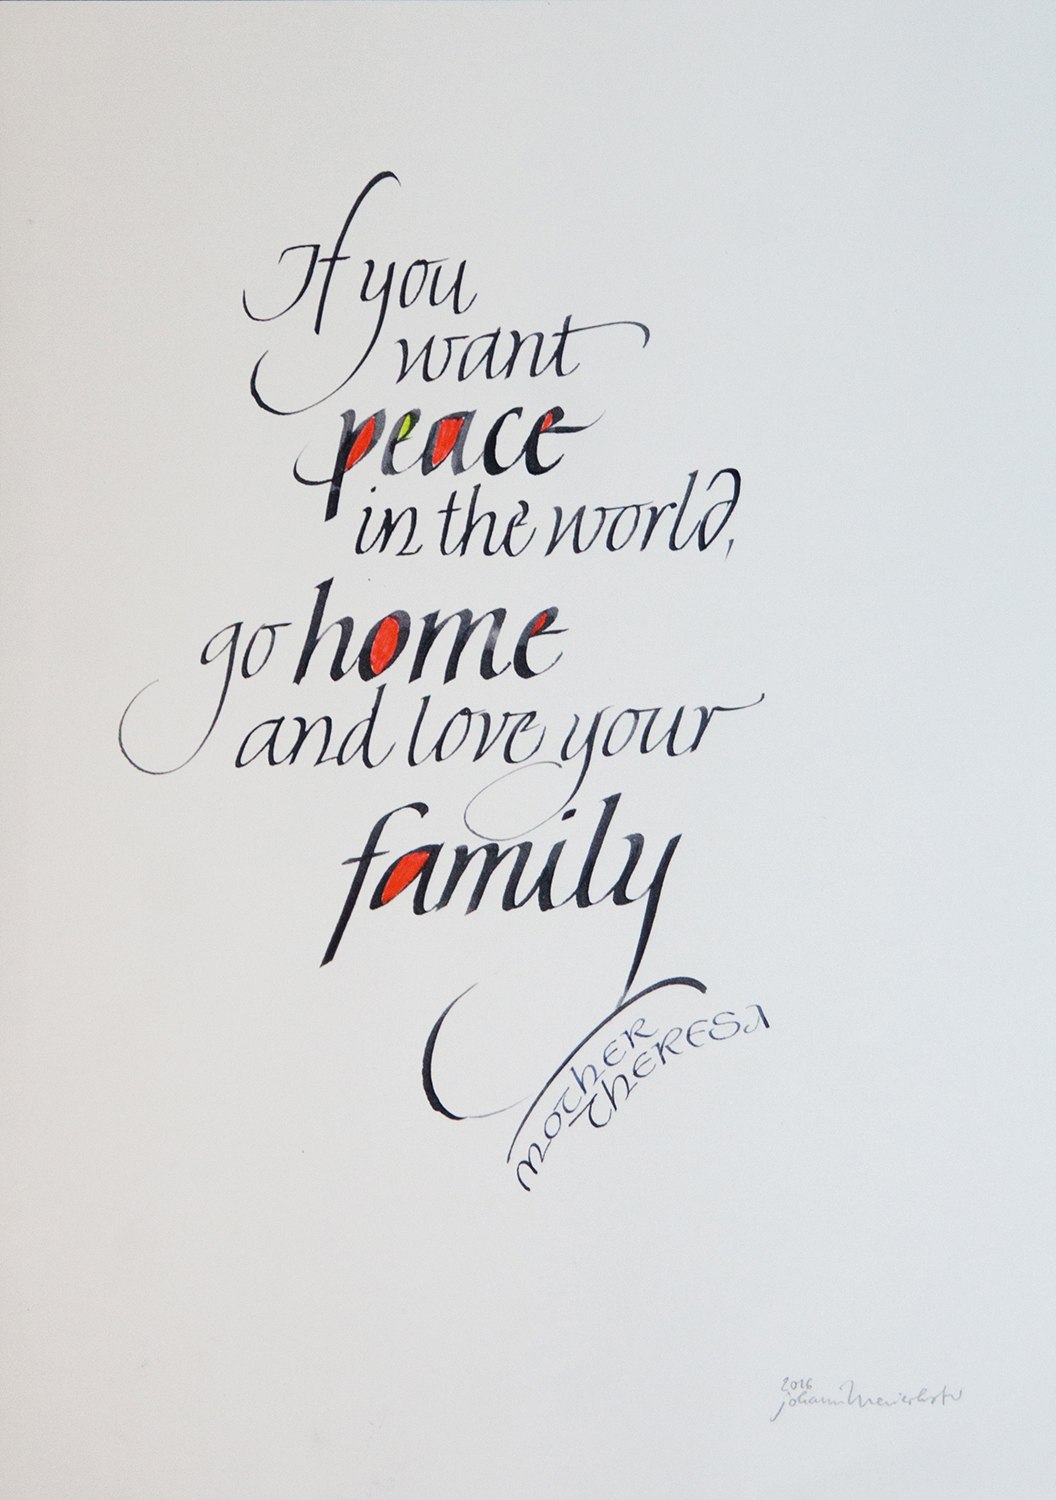 If you
want
peace
in the world,
go home
and love your
family
MOTHER
THERESA
2016
johann Maierhofer